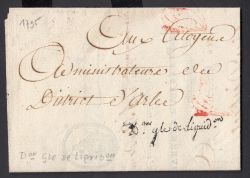 1795
Aux Citoyens
Administrateurs du
District d'Arles
Don gle de Liquidon
Don Gle de Liquidon